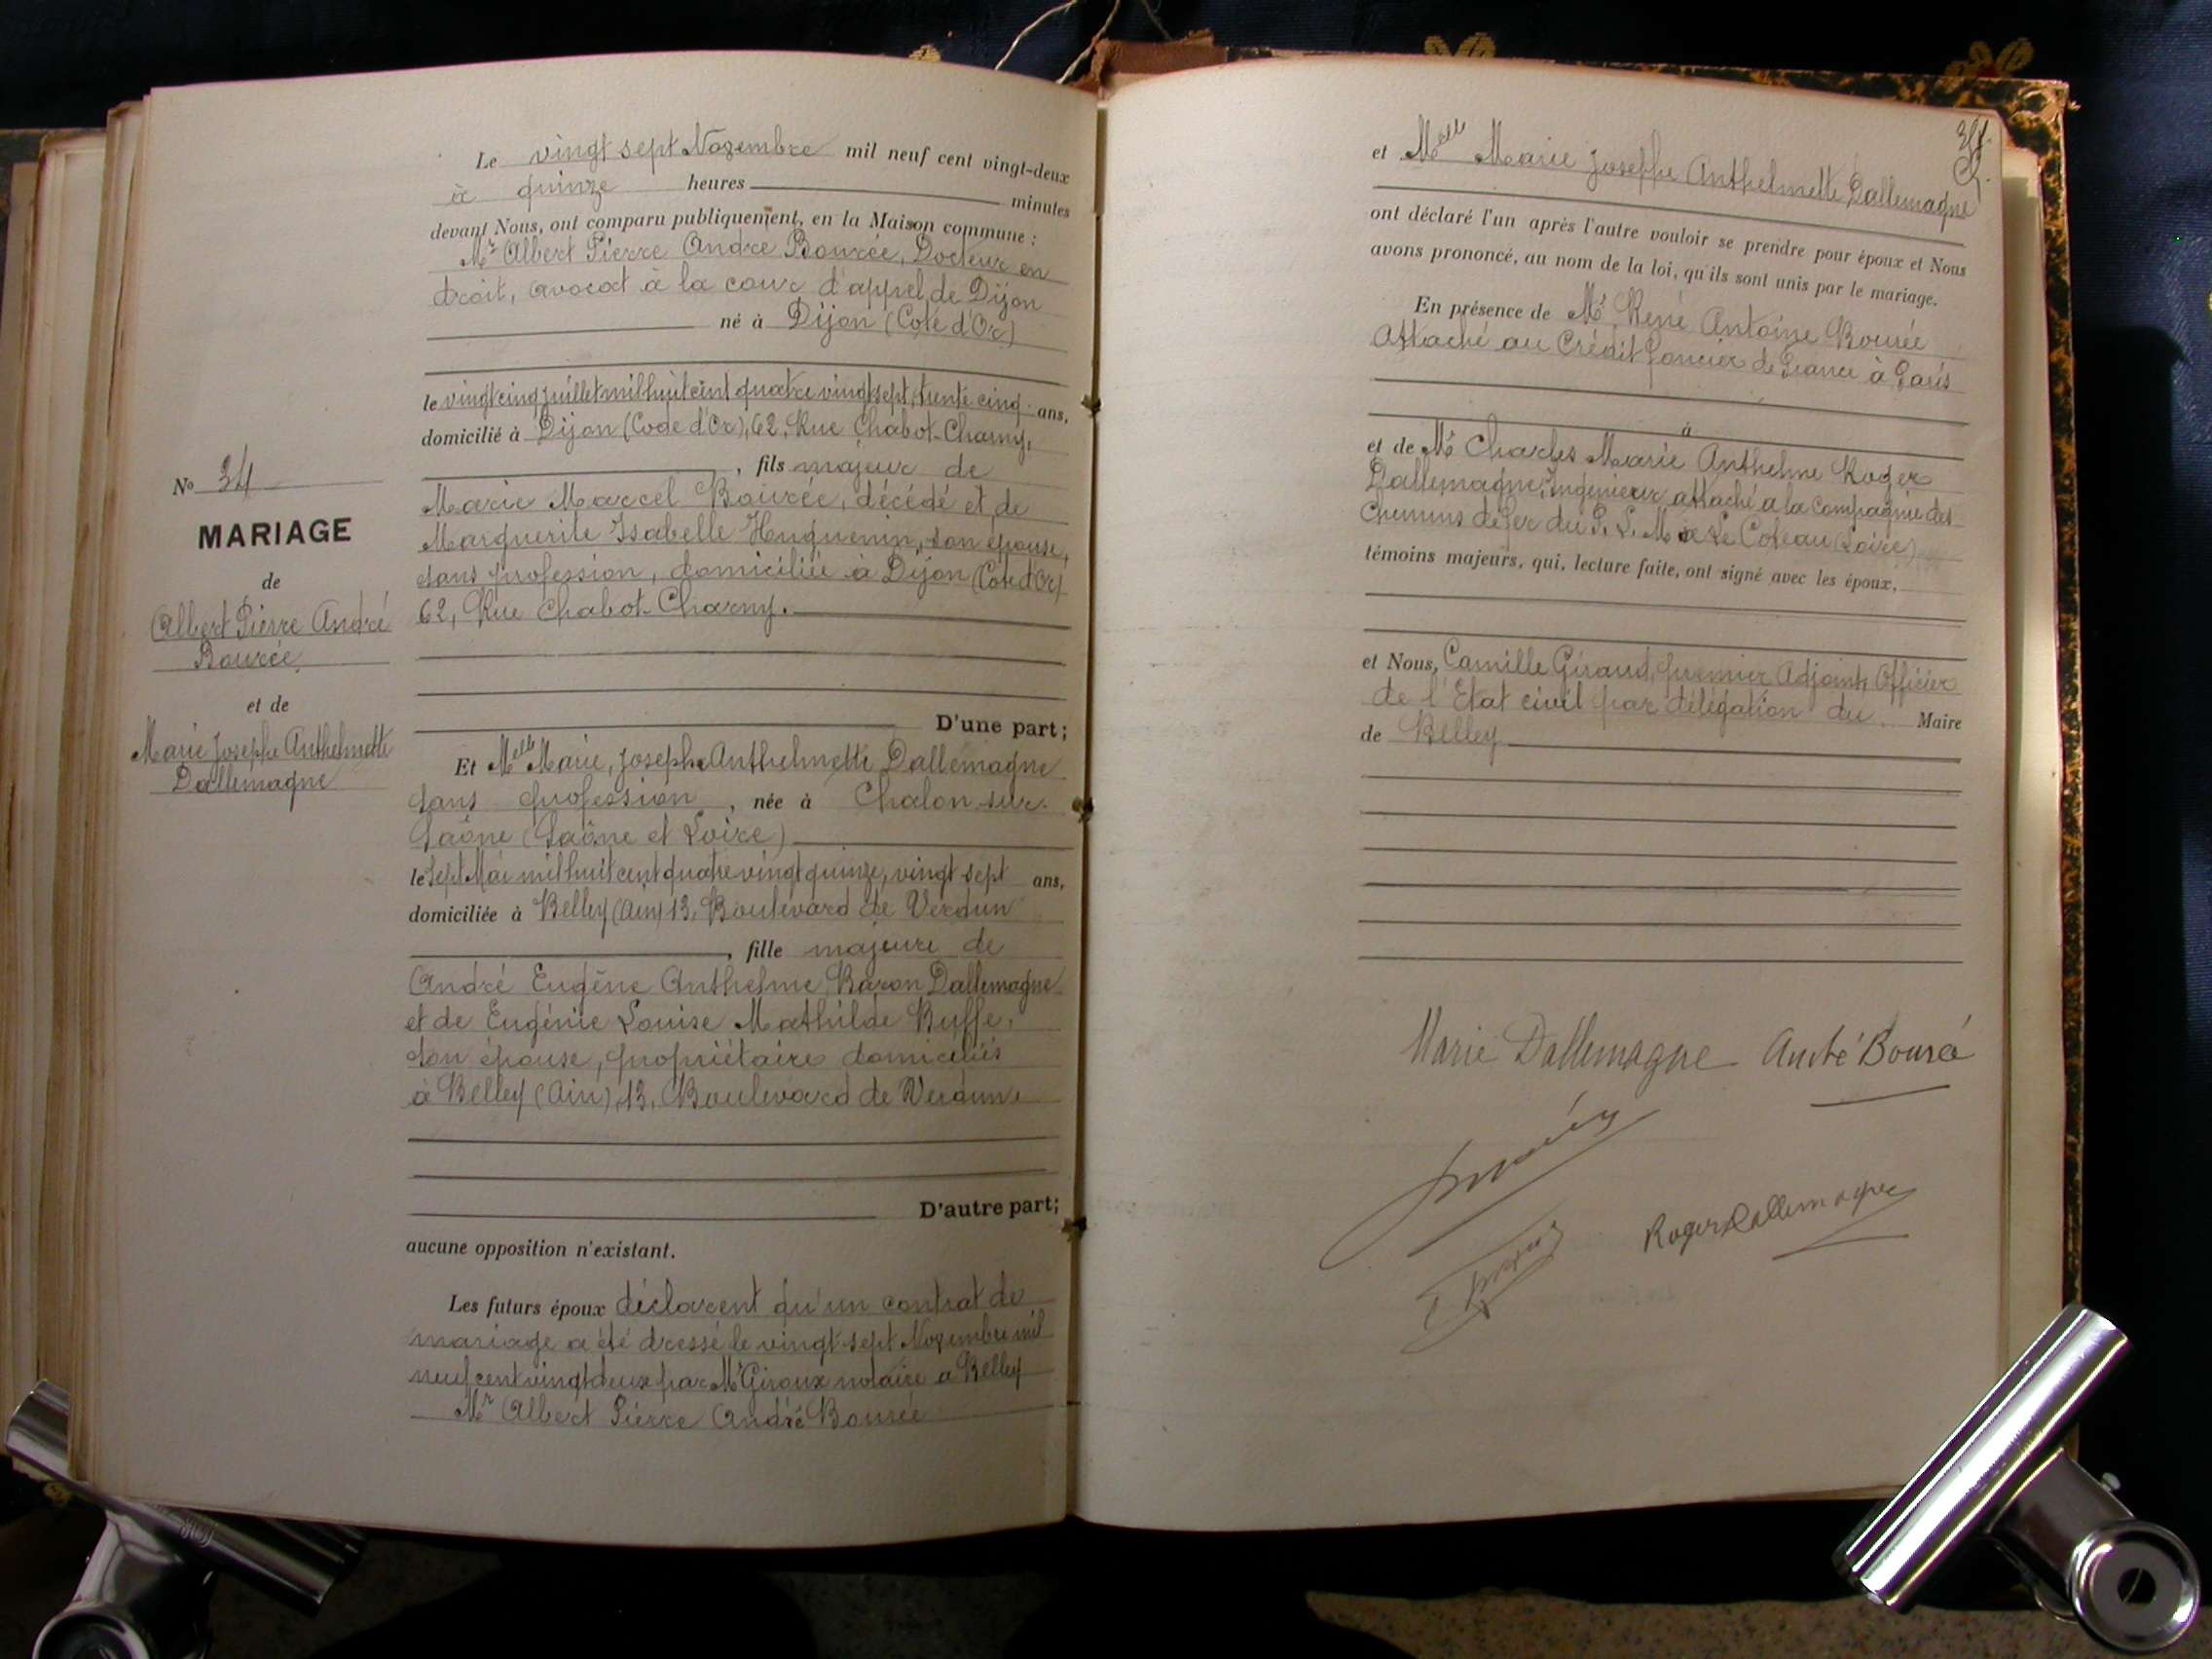 Le vingt sept Novembre mil neuf cent vingt-deux
à quinze heures minutes
devant Nous, ont comparu publiquement, en la Maison commune :
Mr Albert Pierre André Bourée, Docteur en
droit, avocat à la cour d'appel de Dijon
né à Dijon (Cote d'Or)
le vingt cinq juillet mil huit cent quatre vingt sept, trente cinq ans,
domicilié à Dijon (Cote d'Or), 62, Rue Chabot-Charny,
, fils majeur de
Marie Marcel Bourée, décédé et de
Marguerite Isabelle Huguenin, son épouse,
sans profession, domiciliée à Dijon (Cote d'Or)
62, Rue Chabot-Charny.
D'une part;
No 34
MARIAGE
de
Albert Pierre André
Bourée
et de
Marie Josephe Anthelmette
Dallemagne
Et Melle Marie, Josephe Anthelmette Dallemagne
sans profession, née à Chalon-sur-
Saône (Saône et Loire)
le Sept Mai mil huit cent quatre vingt quinze, vingt sept ans,
domiciliée à Belley (Ain) 13, Boulevard de Verdun
, fille majeure de
André Eugène Anthelme Baron Dallemagne
et de Eugénie Louise Mathilde Buffe,
son épouse, propriétaires domiciliés
à Belley (Ain), 13, Boulevard de Verdun.
D'autre part;
aucune opposition n'existant.
Les futurs époux déclarent qu'un contrat de
mariage a été dressé le vingt-sept Novembre mil
neuf cent vingt deux par Me Giroux notaire a Belley
Mr Albert Pierre André Bourée
34.
et Melle Marie Josephe Anthelmette Dallemagne
ont déclaré l'un après l'autre vouloir se prendre pour époux et Nous
avons prononcé, au nom de la loi, qu'ils sont unis par le mariage.
En présence de Mr René Antoine Bourée
Attaché au Crédit foncier de France à Paris
à
et de Mr Charles Marie Anthelme Roger
Dallemagne, Ingenieur attaché a la Compagnie des
Chemins de Fer du P. L. M. a Le Coteau (Loire)
témoins majeurs, qui, lecture faite, ont signé avec les époux,
et Nous, Camille Giraud, premier Adjoint, Officier
de l'Etat civil par délégation du Maire
de Belley
Marie Dallemagne André Bourée
Roger Dallemagne